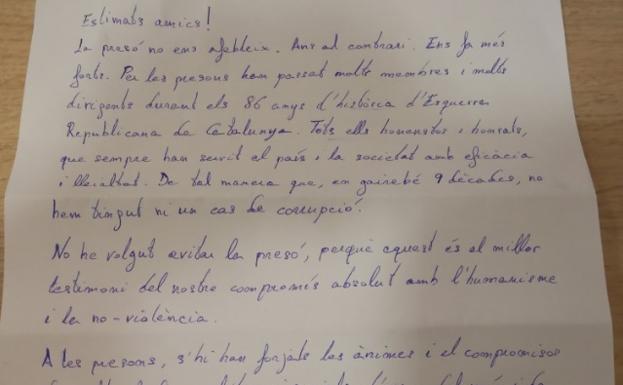 Estimats amics!
La presó no ens afebleix. Ans al contrari. Ens fa més
forts. Per les presons han passat molts membres i molts
dirigents durant els 86 anys d'història d'Esquerra
Republicana de Catalunya. Tots ells honestos i honrats,
que sempre han servit el país i la societat amb eficàcia
i lleialtat. De tal manera que, en gairebé 9 dècades, no
hem tingut ni un cas de corrupció.
No he volgut evitar la presó, perquè aquest és el millor
testimoni del nostre compromís absolut amb l'humanisme
i la no-violència.
A les presons, s'hi han forjats les ànimes i el compromisos